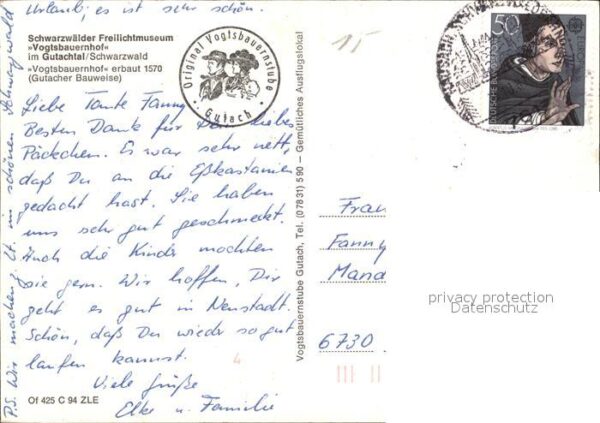 Urlaub; es ist sehr schön.
Schwarzwälder Freilichtmuseum
»Vogtsbauernhof«
im Gutachtal/Schwarzwald
»Vogtsbauernhof« erbaut 1570
(Gutacher Bauweise)
Original Vogtsbauernstube
· Gutach ·
Liebe Tante Fanny,
Besten Dank für Dein liebes
Päckchen. Es war sehr nett,
daß Du an die Eßkastanien
gedacht hast. Sie haben
uns sehr gut geschmeckt.
Auch die Kinder mochten
sie gern. Wir hoffen, Dir
geht es gut in Neustadt.
Schön, daß Du wieder so gut
laufen kannst.
Viele Grüße
Elke u. Familie
P.S. Wir machen z. Zt. im schönen Schwarzwald
Of 425 C 94 ZLE
Vogtsbauernstube Gutach, Tel. (07831) 590 – Gemütliches Ausflugslokal
15
50
DEUTSCHE BUNDESPOST
Frau
Fanny
Mand
6730
4
privacy protection
Datenschutz